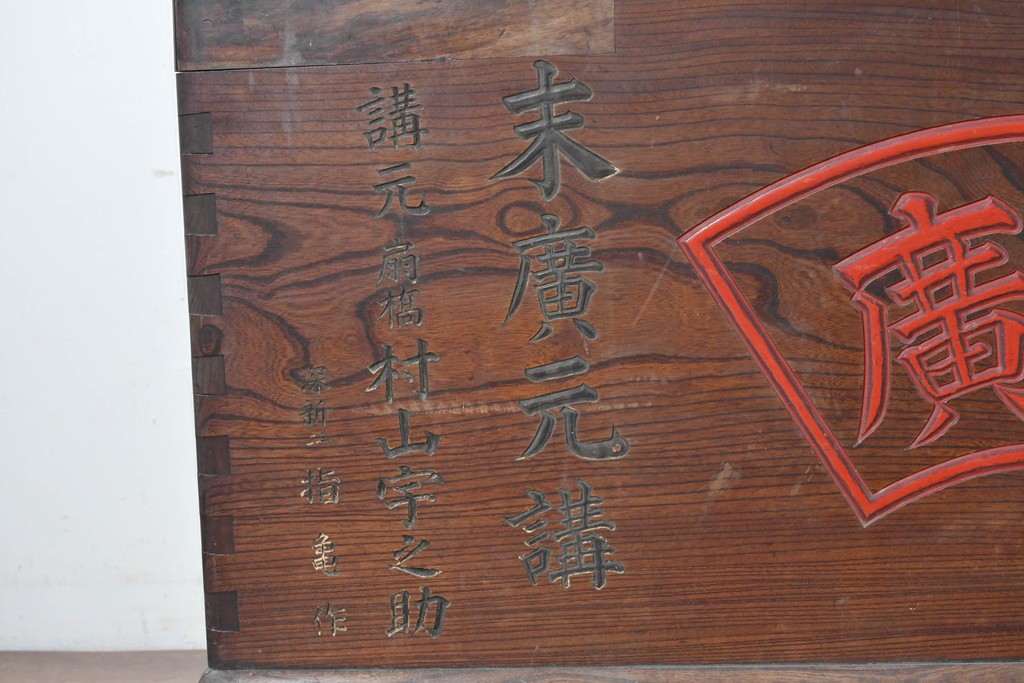 廣
末廣元講
講元 扇橋 村山宇之助
深新二 指亀作